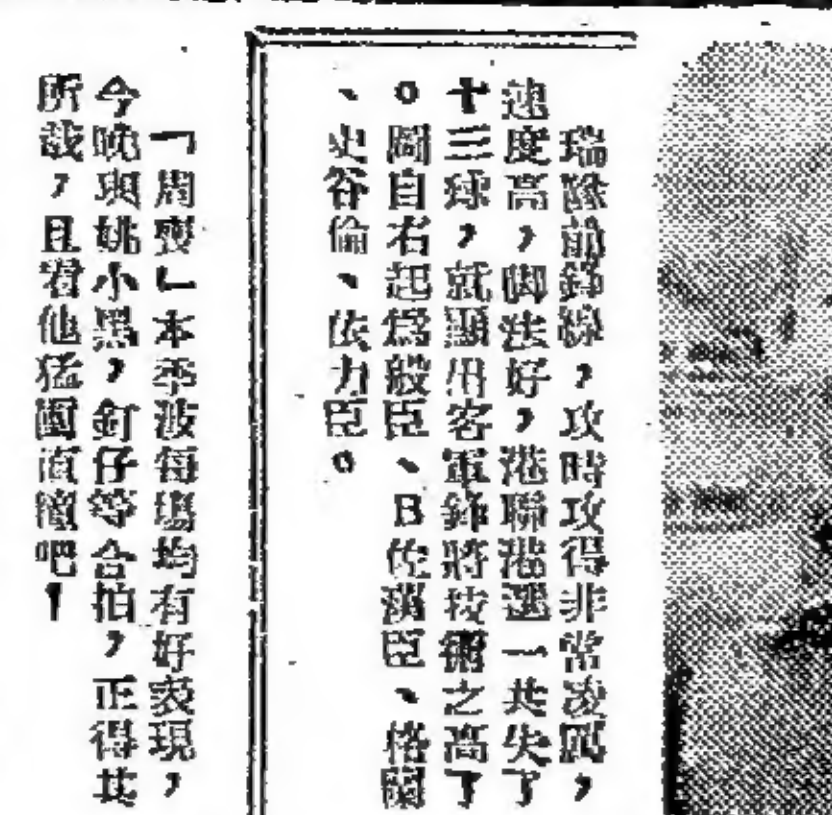 瑞隊前鋒線，攻時攻得非常凌厲，
速度高，脚法好，港聯港選一共失了
十三球，就顯出客軍鋒將技術之高了
。圖自右起爲般臣、B佐漢臣、格蘭
、史谷倫、依力臣。
「周斐」本季波每塲均有好表現，
今晚與姚小黑，釘仔等合拍，正得其
所哉，且看他猛圖直鑽吧！